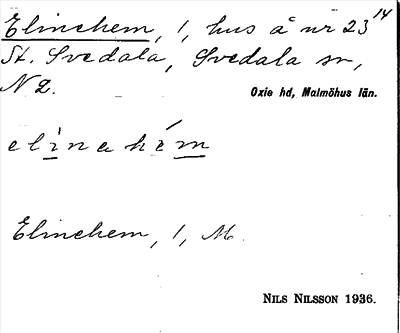 Elinehem, 1, hus å nr 23¹⁴
St. Svedala, Svedala sn,
N 2.
Oxie hd, Malmöhus län.
elinehém
Elinehem, 1, M.
NILS NILSSON 1936.